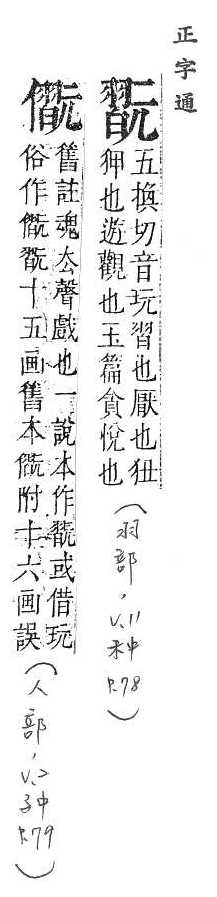 正字通
翫
五換切音玩習也厭也狃
狎也遊觀也玉篇貪悅也
(羽部, v.11 未中 P.78)
舊註魂去聲戲也一說本作翫或借玩
俗作翫十五画舊本附十六画誤
(人部, v.2 子中 P.79)